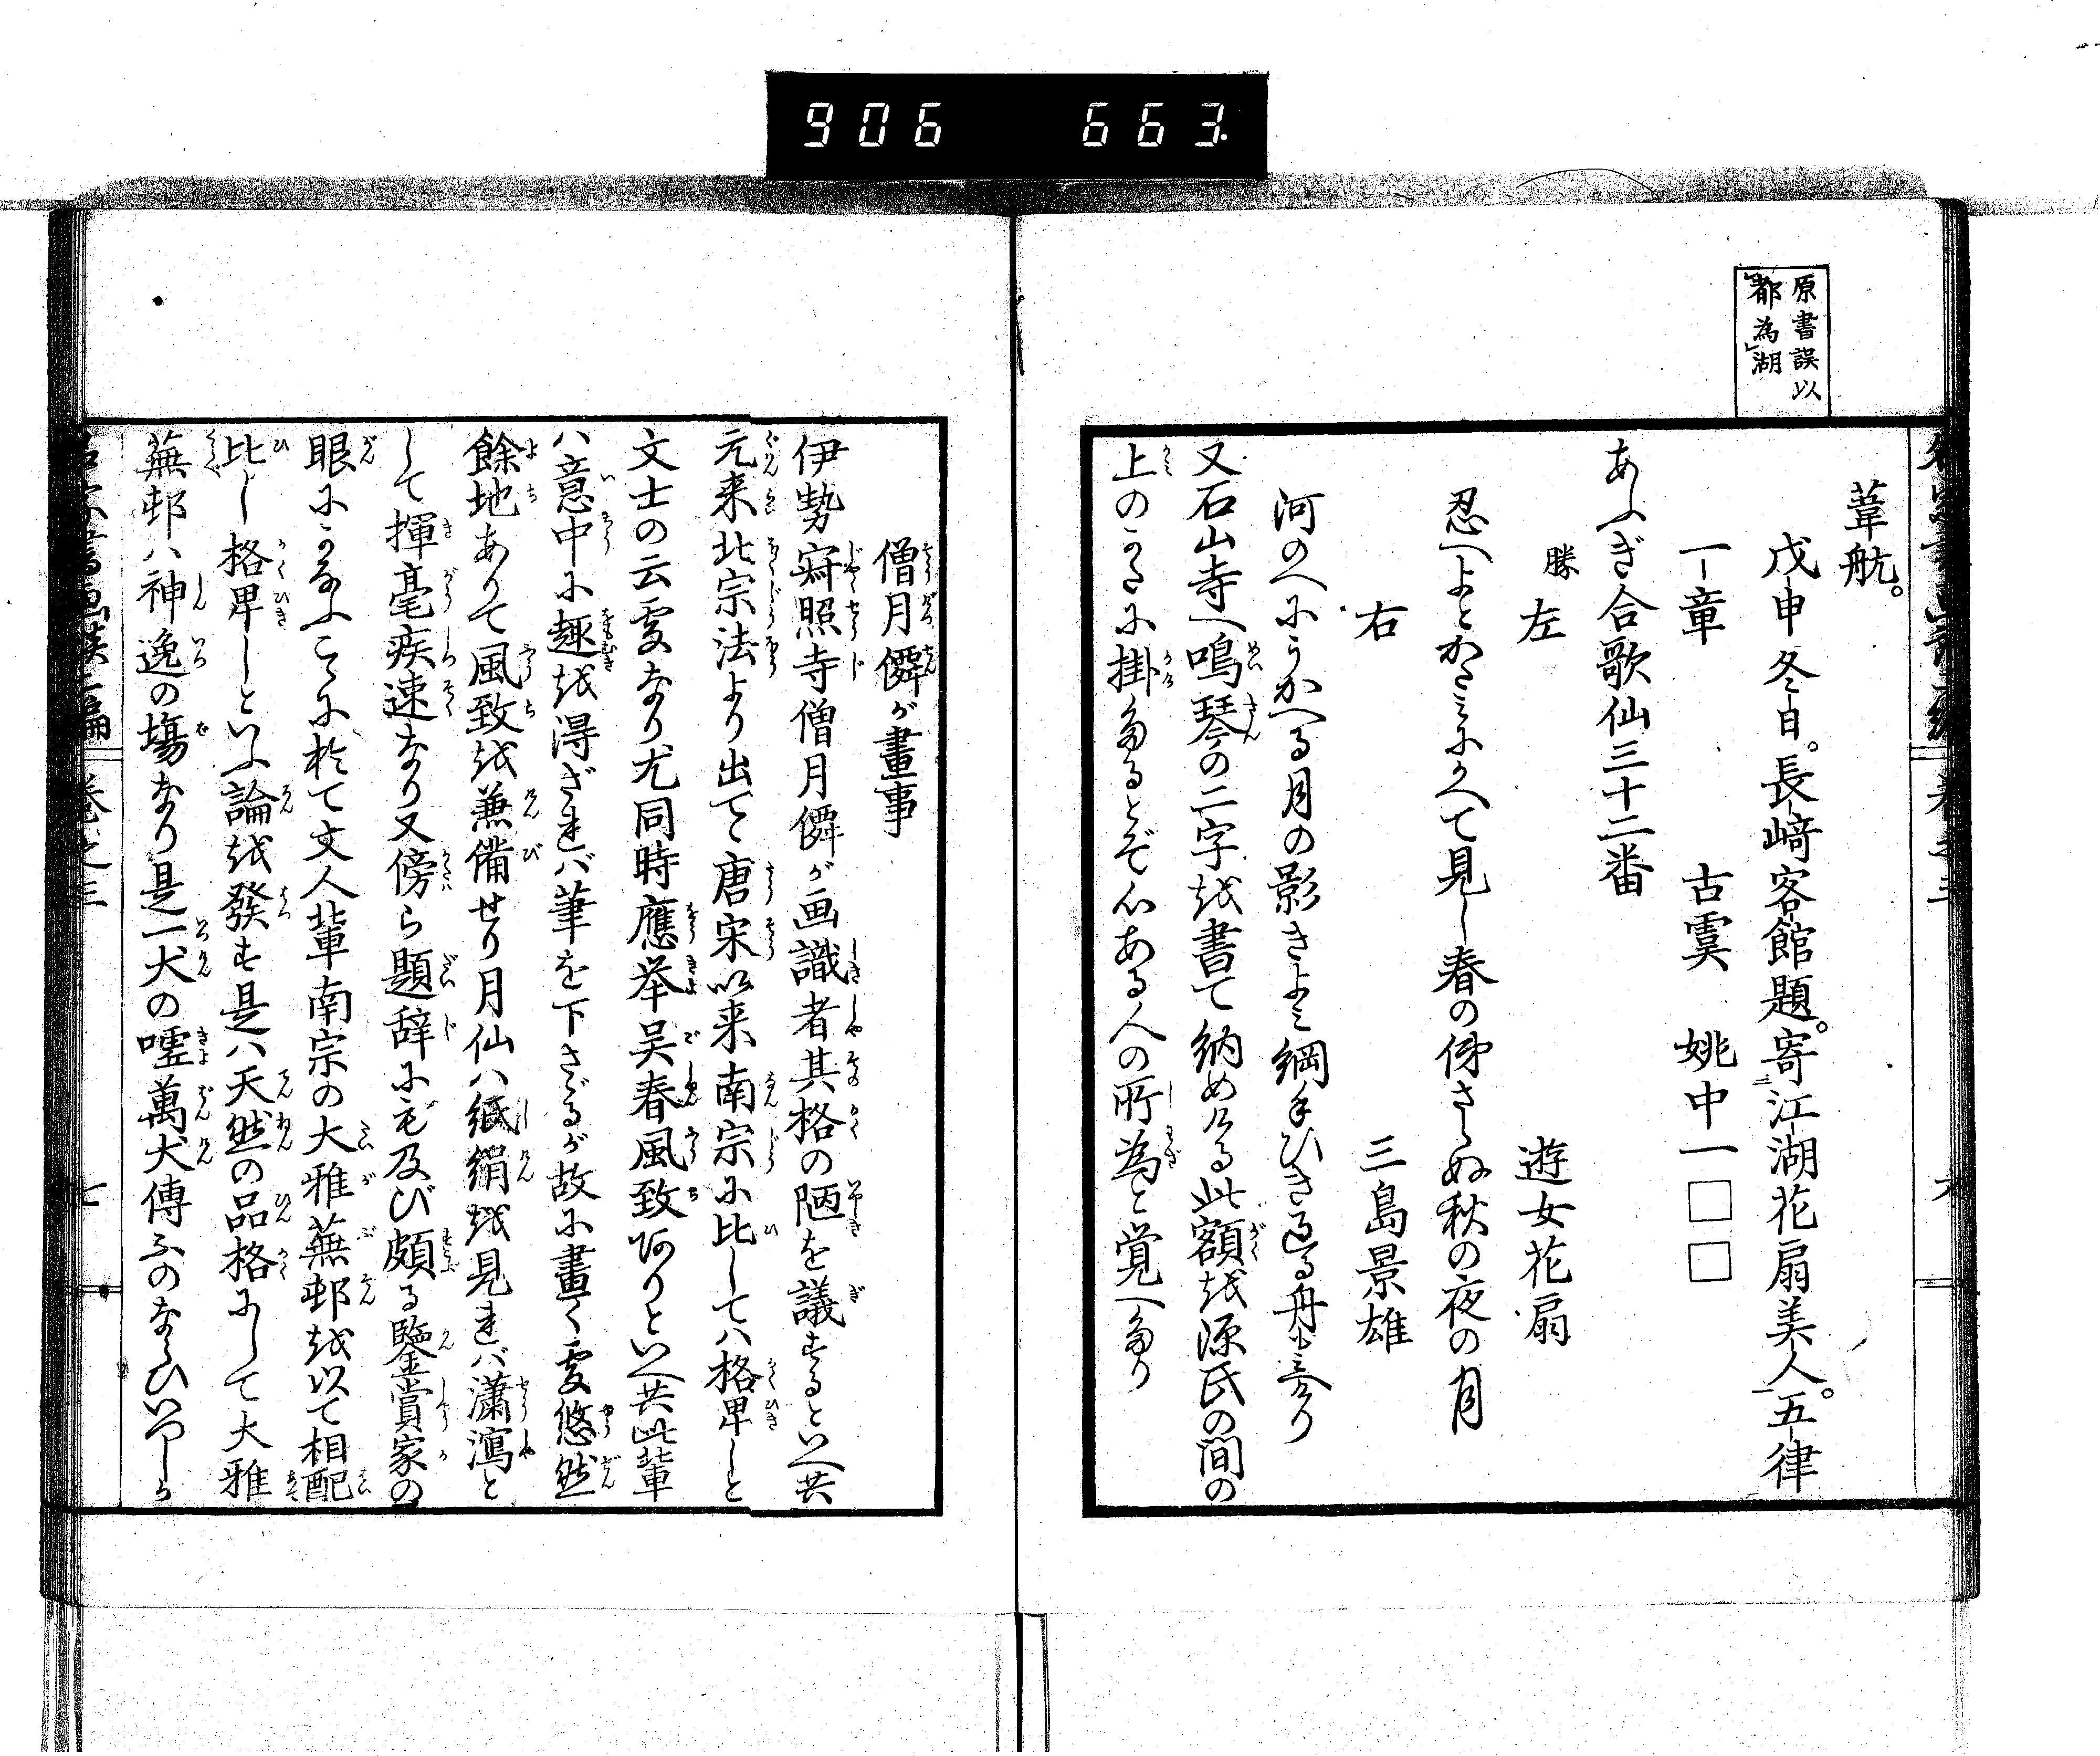 906 663.
原書誤以
「都為」湖
葦航。
戊申冬日。長﨑客館題。寄江湖花扇美人。五律
一章 古雲 姚中一□□
あふぎ合歌仙三十二番
勝 左 遊女花扇
忍へよとかたみにかへて見し春の俤さらぬ秋の夜の月
右 三島景雄
河のへにうかへる月の影きよみ綱手ひき
又石山寺へ鳴琴の二字を書て納めける此額を源氏の間の
上のかたに掛たるとぞ心ある人の所為と覚へたり
僧月僊が畫事
伊勢寂照寺僧月僊が画識者其格の陋を議するといへ共
元来北宗法より出てゝ唐宋以来南宗に比しては格卑しと
文士の云処なり尤同時應挙呉春風致ありといへ共此輩
ハ意中に趣を得ざれバ筆を下さゞるが故に畫く処悠然
餘地ありて風致を兼備せり月仙ハ紙絹を見れバ瀟洒と
して揮毫疾速なり又傍ら題辞にも及び頗る鑒賞家の
眼にかなふこゝに於て文人輩南宗の大雅蕪邨を以て相配
比し格卑しといふ論を發す是ハ天然の品格にして大雅
蕪邨ハ神逸の場なり是一犬の嘘萬犬傳ふのならひいやしか
名家書画談二編 巻之三 七